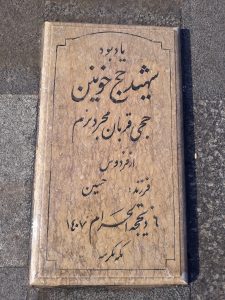 یادبود
شهید حج خونین
حجی قربان مجرد بزم
از فردوس
فرزند: حسین
۶ ذیحجه الحرام ۱۴۰۷
مکه مکرمه